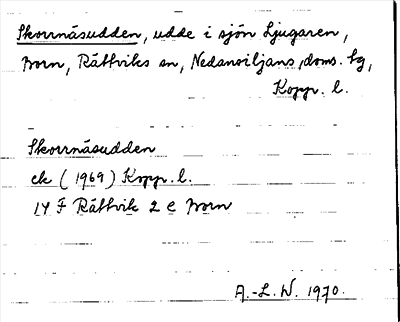 Skorrnäsudden, udde i sjön Ljugaren,
Born, Rättviks sn, Nedansiljans doms. tg,
Kopp. l.
Skorrnäsudden
ek (1969) Kopp. l.
14 F Rättvik 2 e Born
A.-L. W. 1970.